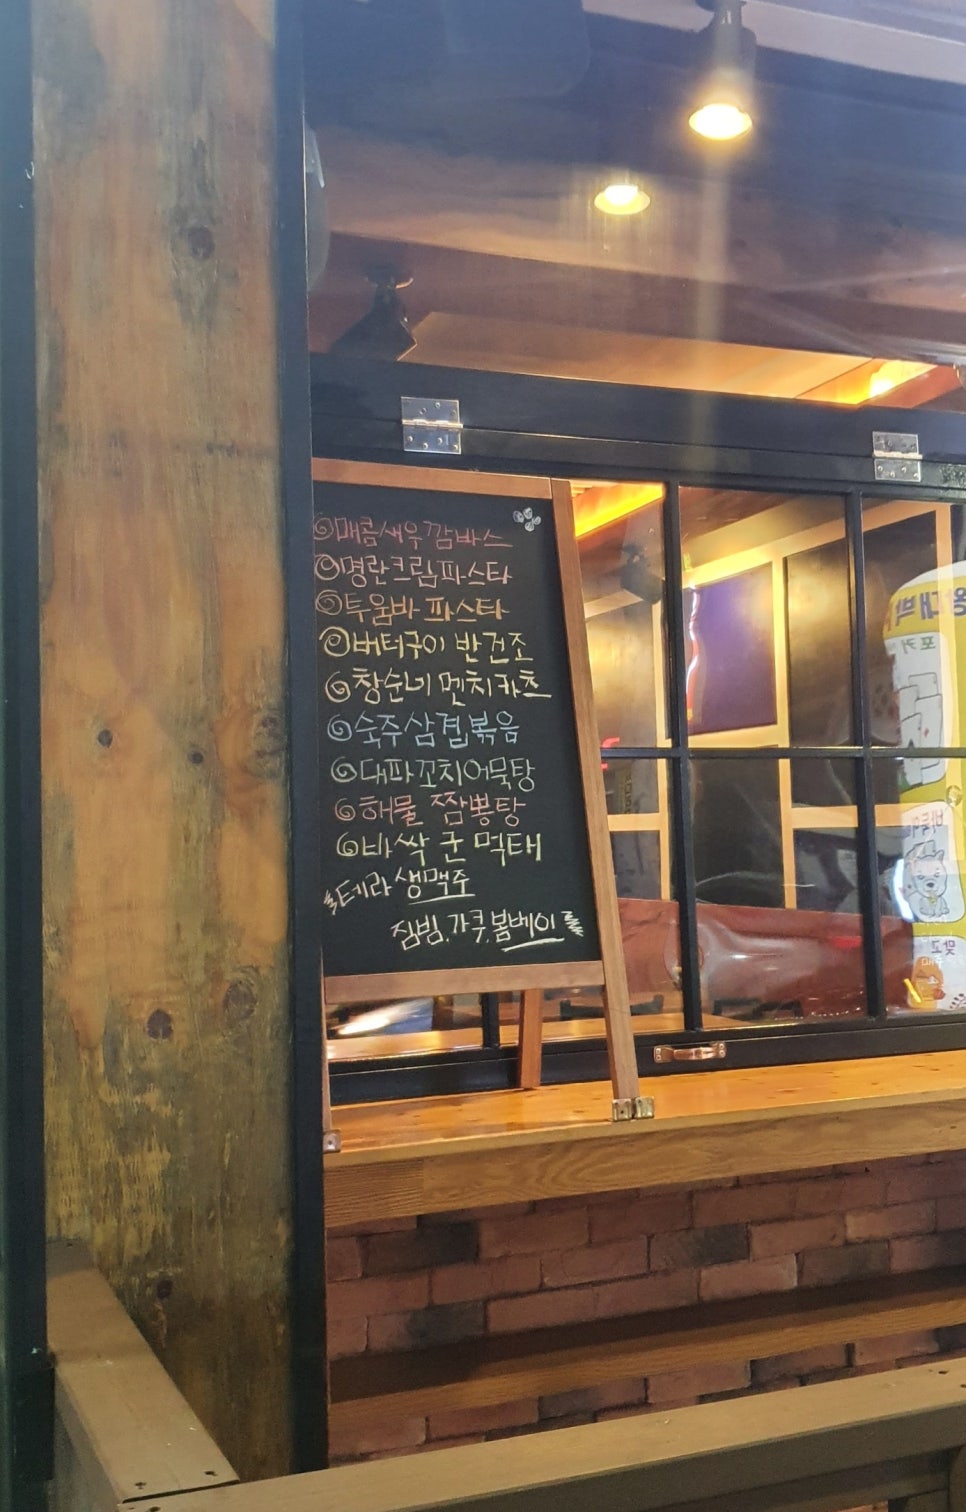 매콤새우감바스
명란크림파스타
투움바 파스타
버터구이 반건조
창순이 멘치카츠
숙주삼겹볶음
대파꼬치어묵탕
해물 짬뽕탕
바싹 군 먹태
테라 생맥주
짐빔, 가쿠, 봄베이